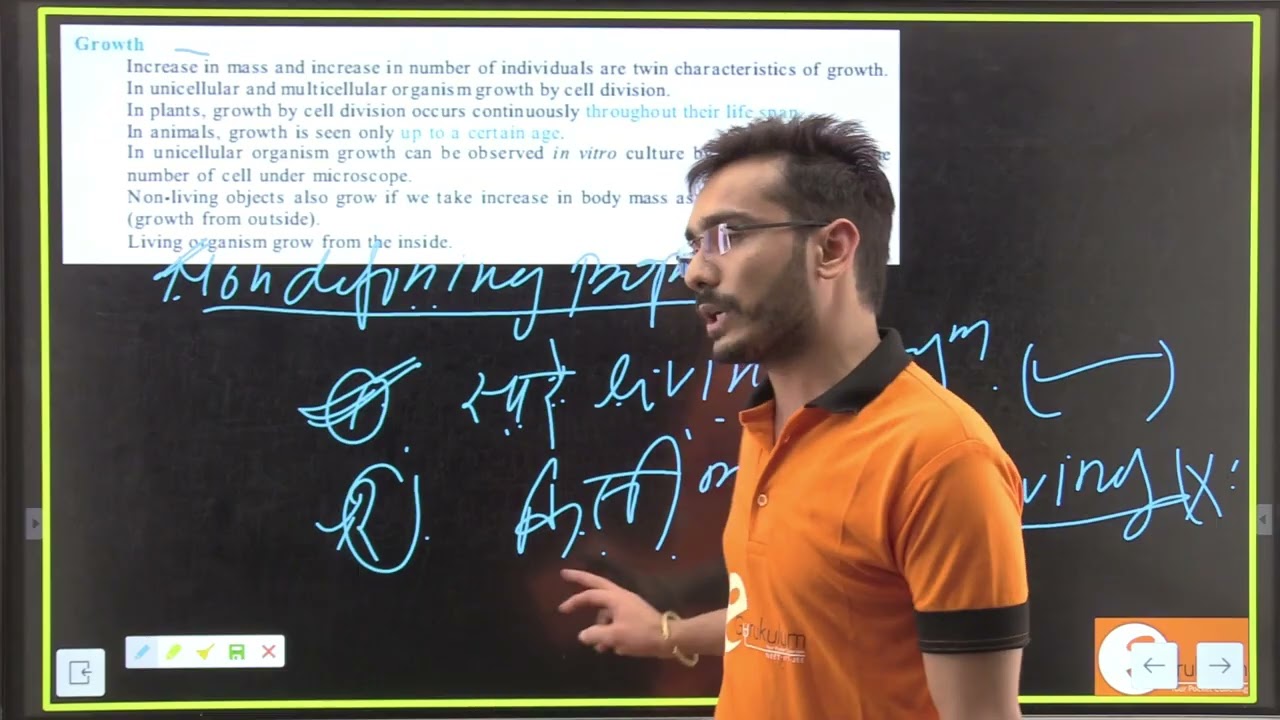 Growth
Increase in mass and increase in number of individuals are twin characteristics of growth.
In unicellular and multicellular organism growth by cell division.
In plants, growth by cell division occurs continuously throughout their life span.
In animals, growth is seen only up to a certain age.
In unicellular organism growth can be observed in vitro culture
number of cell under microscope.
Non-living objects also grow if we take increase in body mass as
(growth from outside).
Living organism grow from the inside.
Non defining
सारे living
किसी
Gurukulum